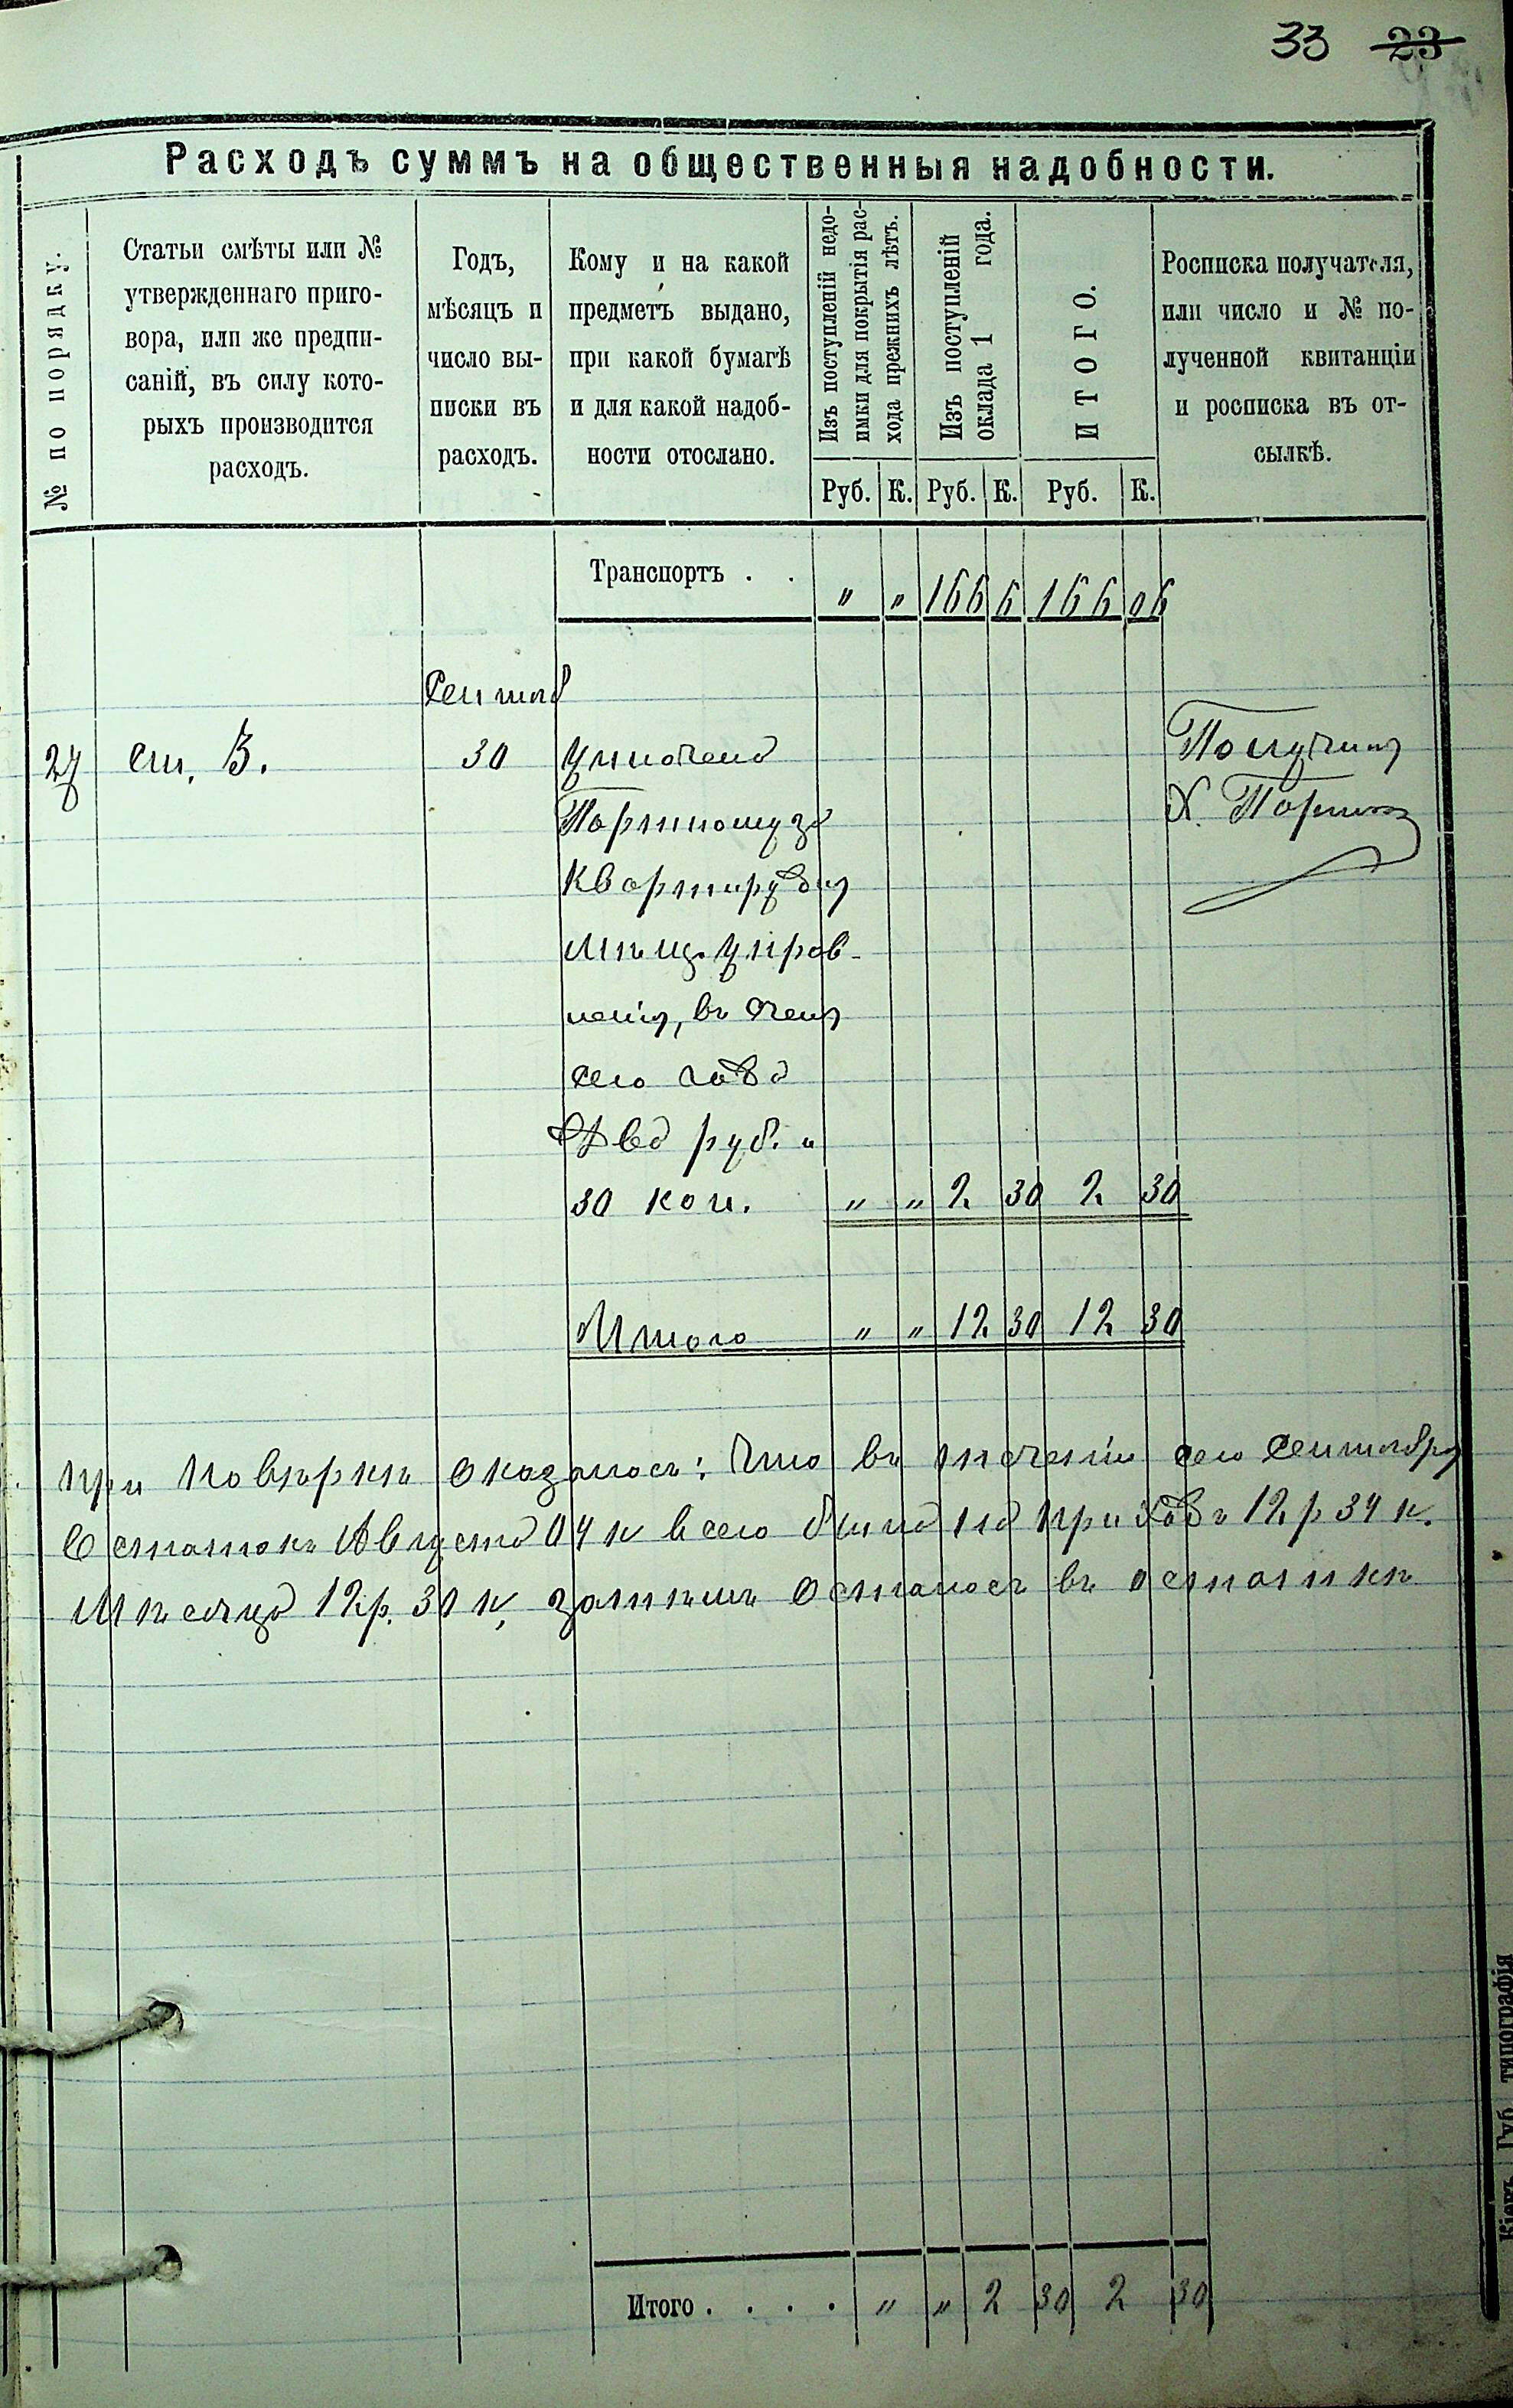 33 23
Расходъ суммъ на общественныя надобности.
№ по порядку.
Статьи смѣты или №
утвержденнаго приго-
вора, или же предпи-
саній, въ силу кото-
рыхъ производится
расходъ.
Годъ,
мѣсяцъ и
число вы-
писки въ
расходъ.
Кому и на какой
предметъ выдано,
при какой бумагѣ
и для какой надоб-
ности отослано.
Изъ поступленій недо-
имки для покрытія рас-
хода прежнихъ лѣтъ.
Изъ поступленій
оклада 1 года.
ИТОГО.
Росписка получателя,
или число и № по-
лученной квитанціи
и росписка въ от-
сылкѣ.
Руб. К. Руб. К. Руб. К.
Транспортъ . . " " 166 6 166 06
Сентяб
27 ст. 3. 30 Уплочено Получилъ
Портному за Х. Портной
Квартиру для
Мѣщ. управ-
ленія, въ
сего года
Два руб. и
30 коп. " " 2 30 2 30
Итого " " 12 30 12 30
При повѣркѣ оказалось: Что въ теченіи сего Сентября
Остатокъ Августа 04 к всего было на приходѣ 12 р 34 к.
Мѣсяца 12 р. 30 к, затѣмъ осталось въ остаткѣ
Итого . . . . " " 2 30 2 30
Кіевъ Губ типографія